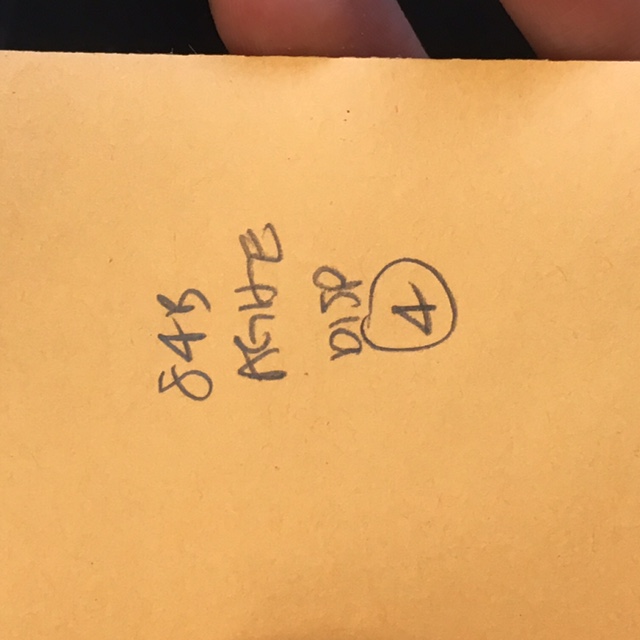 84B
AGHE
DISP
4